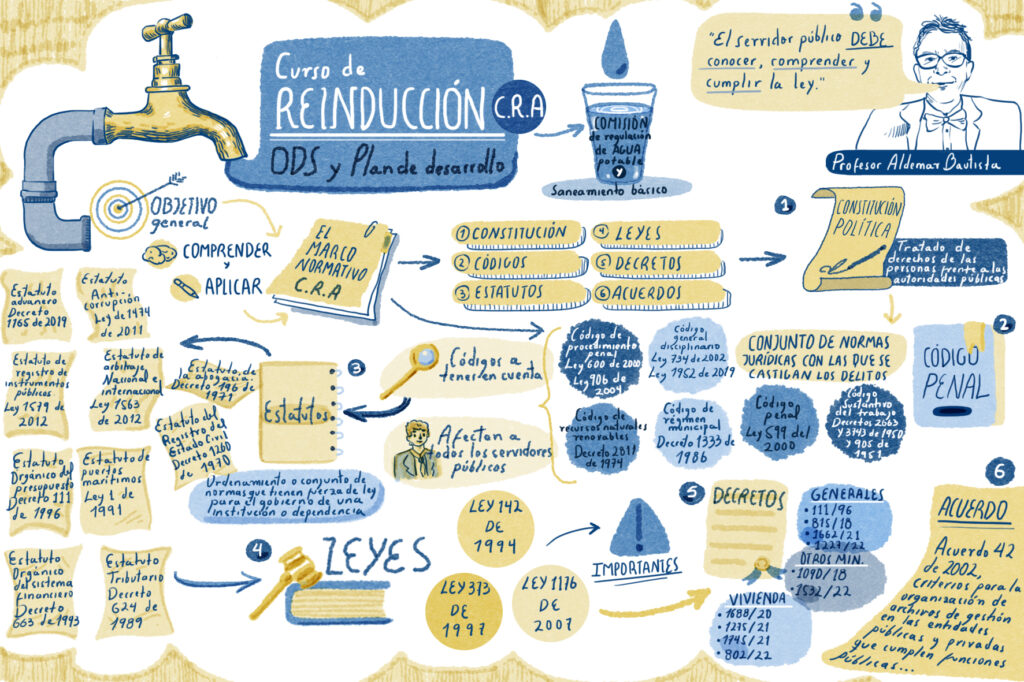 Curso de
REINDUCCIÓN
C.R.A
ODS y Plan de desarrollo
COMISIÓN
de regulación
de AGUA
potable
y
Saneamiento básico
"El servidor público DEBE
conocer, comprender y
cumplir la ley."
Profesor Aldemar Bautista
OBJETIVO
general
COMPRENDER
y
APLICAR
EL
MARCO
NORMATIVO
C.R.A
1 CONSTITUCIÓN
2 CÓDIGOS
3 ESTATUTOS
4 LEYES
5 DECRETOS
6 ACUERDOS
1
CONSTITUCIÓN
POLÍTICA
Tratado de
derechos de las
personas frente a las
autoridades públicas
2
CÓDIGO
PENAL
CONJUNTO DE NORMAS
JURÍDICAS CON LAS QUE SE
CASTIGAN LOS DELITOS
Códigos a
tener en cuenta
Afectan a
todos los servidores
públicos
Código de
procedimiento
penal
Ley 600 de 2000
Ley 906 de
2004
Código
general
disciplinario
Ley 734 de 2002
Ley 1952 de 2019
Código de
recursos naturales
renovables
Decreto 2811
de 1974
Código de
régimen
municipal
Decreto 1333 de
1986
Código
penal
Ley 599 del
2000
Código
Sustantivo
del trabajo
Decretos 2663
y 3743 de 1950
y 905 de
1951
3
Estatutos
Ordenamiento o conjunto de
normas que tienen fuerza de ley
para el gobierno de una
institución o dependencia
Estatuto
aduanero
Decreto
1165 de 2019
Estatuto
Anti-
corrupción
Ley de 1474
de 2011
Estatuto de
registro de
instrumentos
públicos
Ley 1579 de
2012
Estatuto de
arbitraje
Nacional e
internacional
Ley 1563
de 2012
Estatuto de
la abogacía.
Decreto 196 de
1971
Estatuto del
Registro del
Estado Civil
Decreto 1260
de 1970
Estatuto
Orgánico del
presupuesto
Decreto 111
de 1996
Estatuto de
puertos
marítimos
Ley 1 de
1991
Estatuto
Orgánico
del sistema
financiero
Decreto
663 de 1993
Estatuto
Tributario
Decreto
624 de
1989
4
LEYES
LEY 142
DE
1994
LEY 373
DE
1997
LEY 1176
DE
2007
IMPORTANTES
5
DECRETOS
GENERALES
• 111/96
• 815/18
• 1662/21
• 1227/22
OTROS MIN.
• 1090/18
• 1532/22
VIVIENDA
• 1688/20
• 1275/21
• 1745/21
• 802/22
6
ACUERDO
Acuerdo 42
de 2002,
criterios para la
organización de
archivos de gestión
en las entidades
públicas y privadas
que cumplen funciones
públicas...